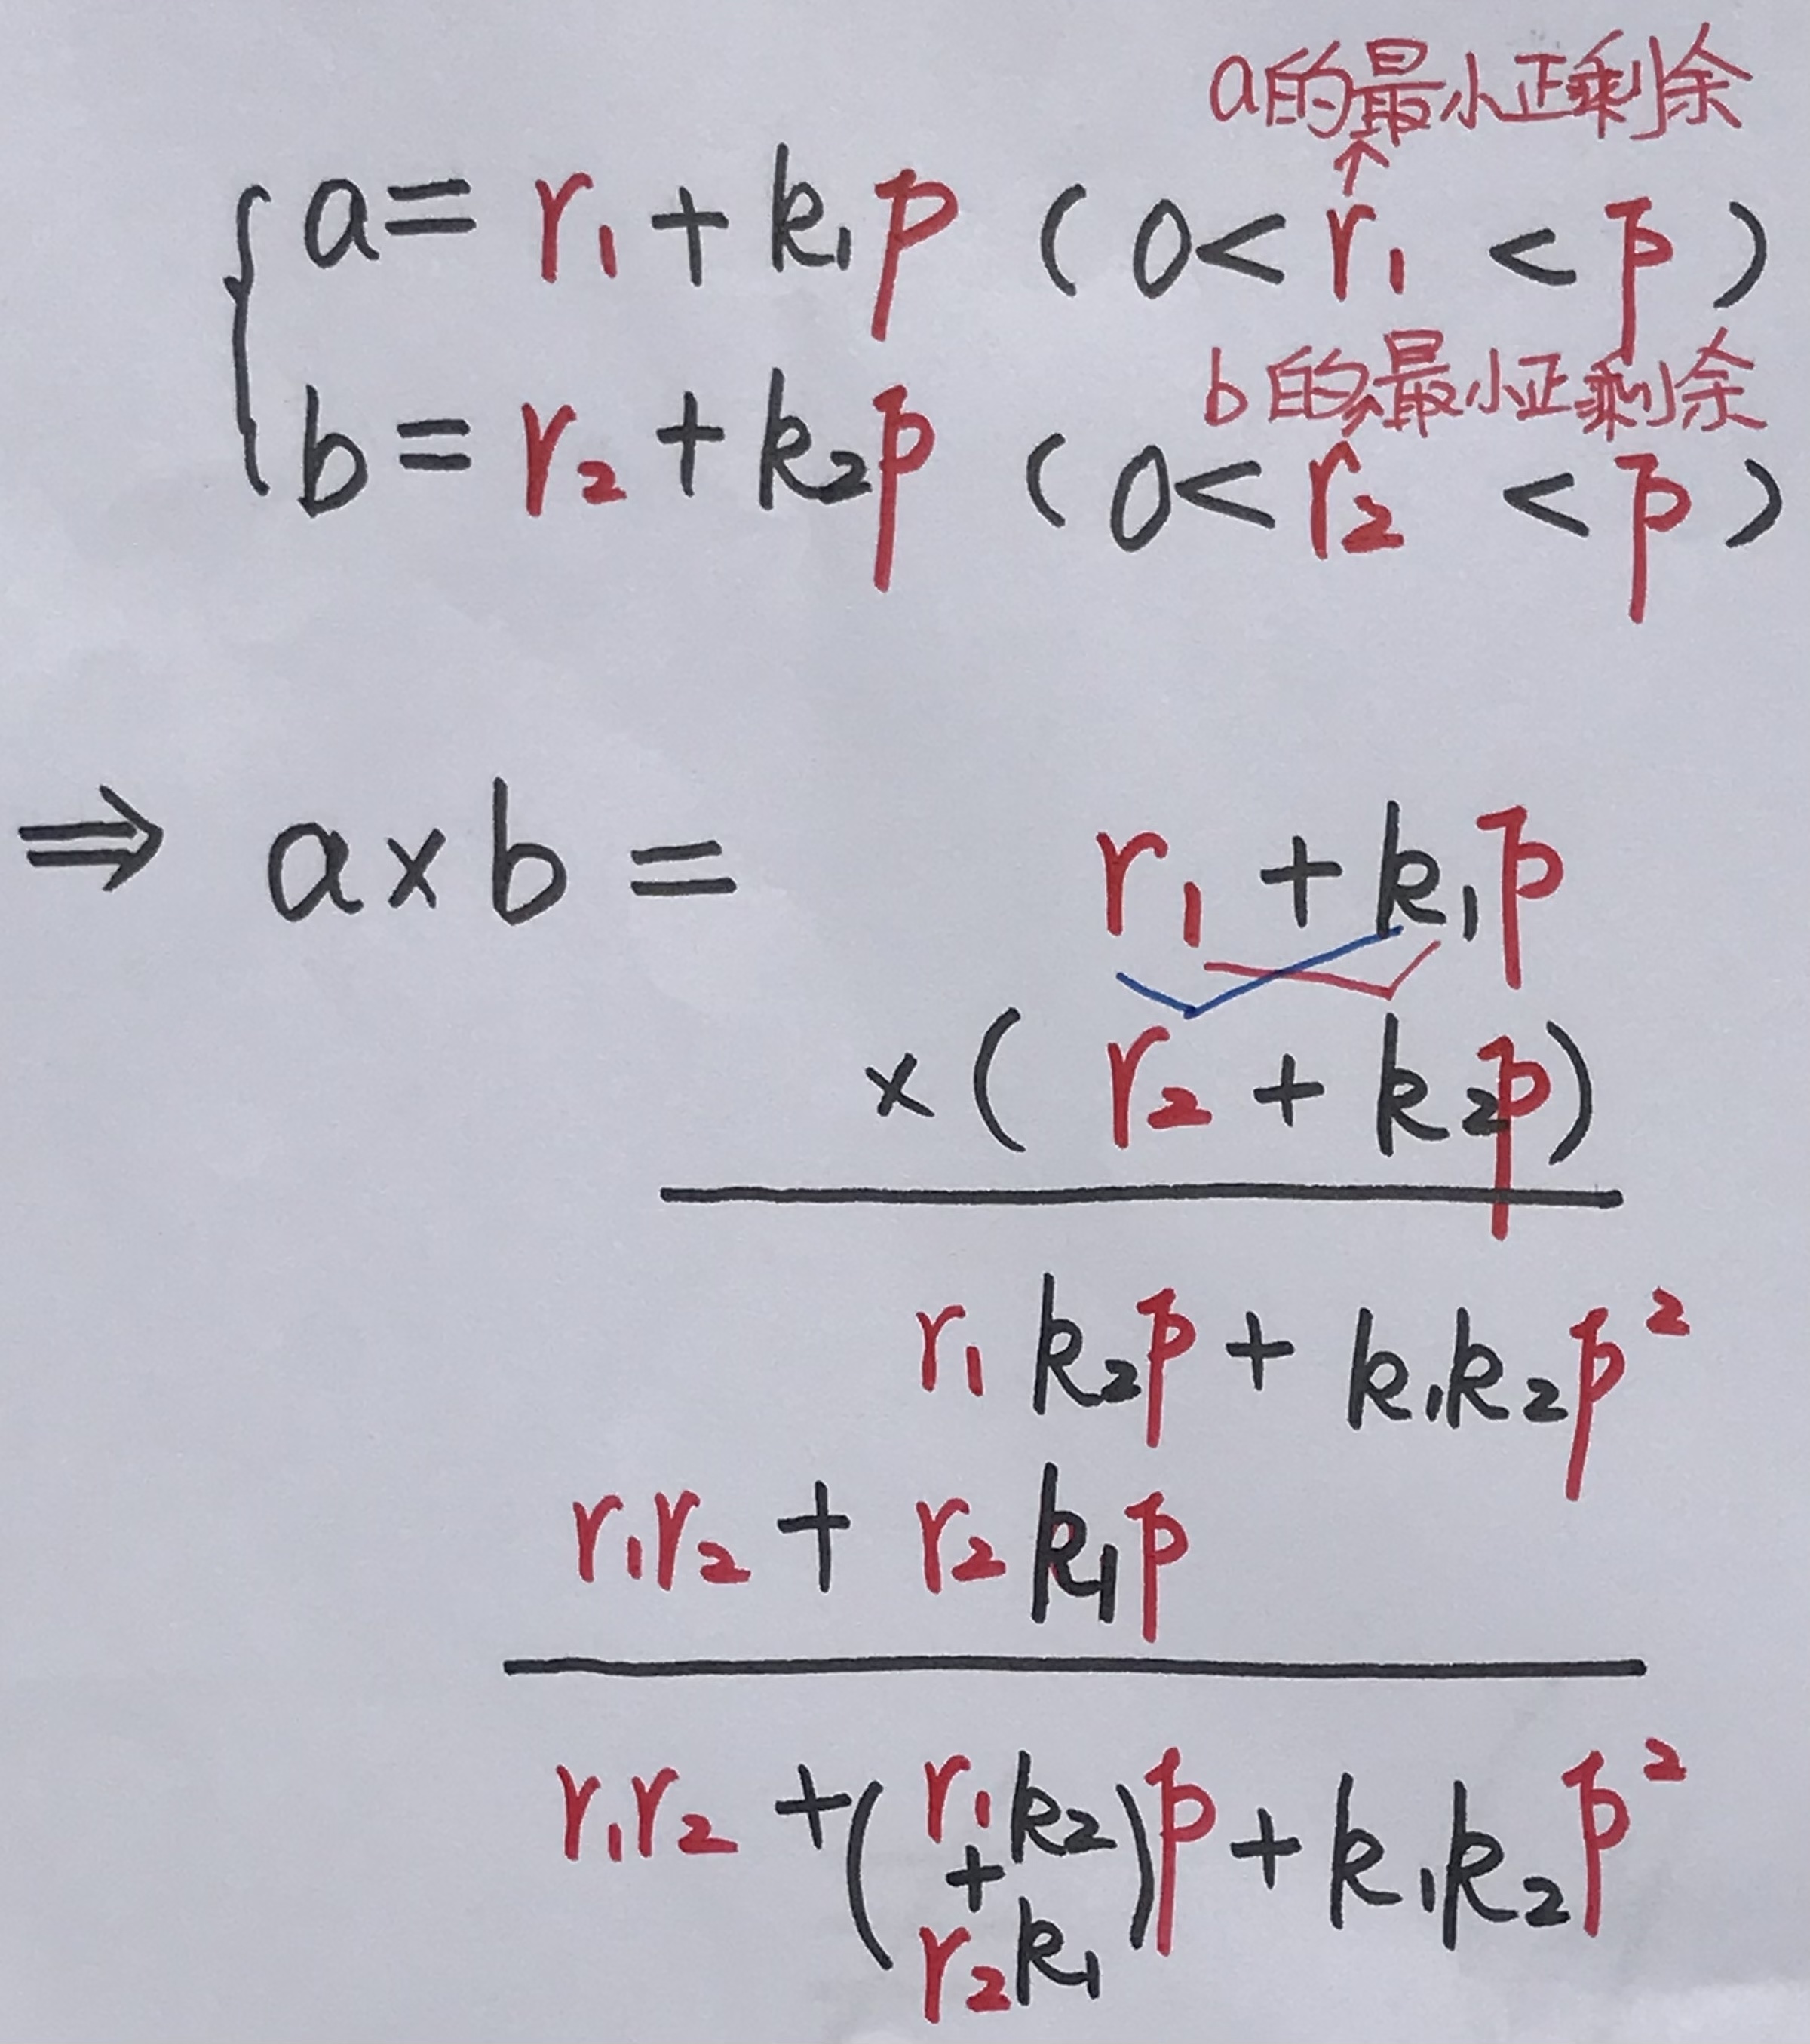 a的最小正剩余
↑
{ a = r₁ + k₁p ( 0 < r₁ < p )
b的最小正剩余
b = r₂ + k₂p ( 0 < r₂ < p )
⇒ a × b = r₁ + k₁p
× ( r₂ + k₂p )
r₁ k₂p + k₁k₂p²
r₁r₂ + r₂ k₁p
r₁r₂ + ( r₁k₂ + r₂k₁ ) p + k₁k₂p²